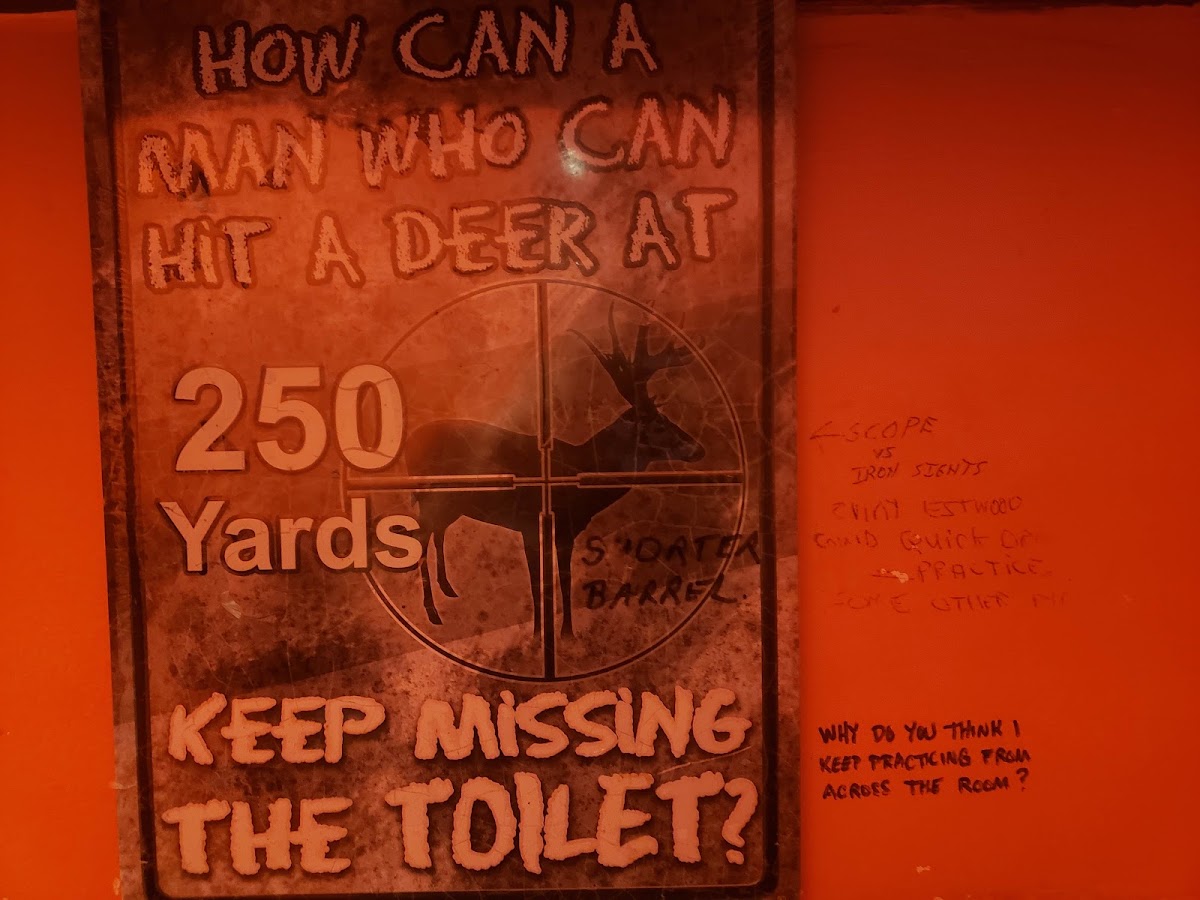 HOW CAN A
MAN WHO CAN
HiT A DEER AT
250
Yards
SHORTER
BARREL.
KEEP MiSSiNG
THE TOiLET?
←SCOPE
VS
IRON SIGHTS
ESTWOOD
QUICK
PRACTICE
OTHER
WHY DO YOU THINK I
KEEP PRACTICING FROM
ACROSS THE ROOM?